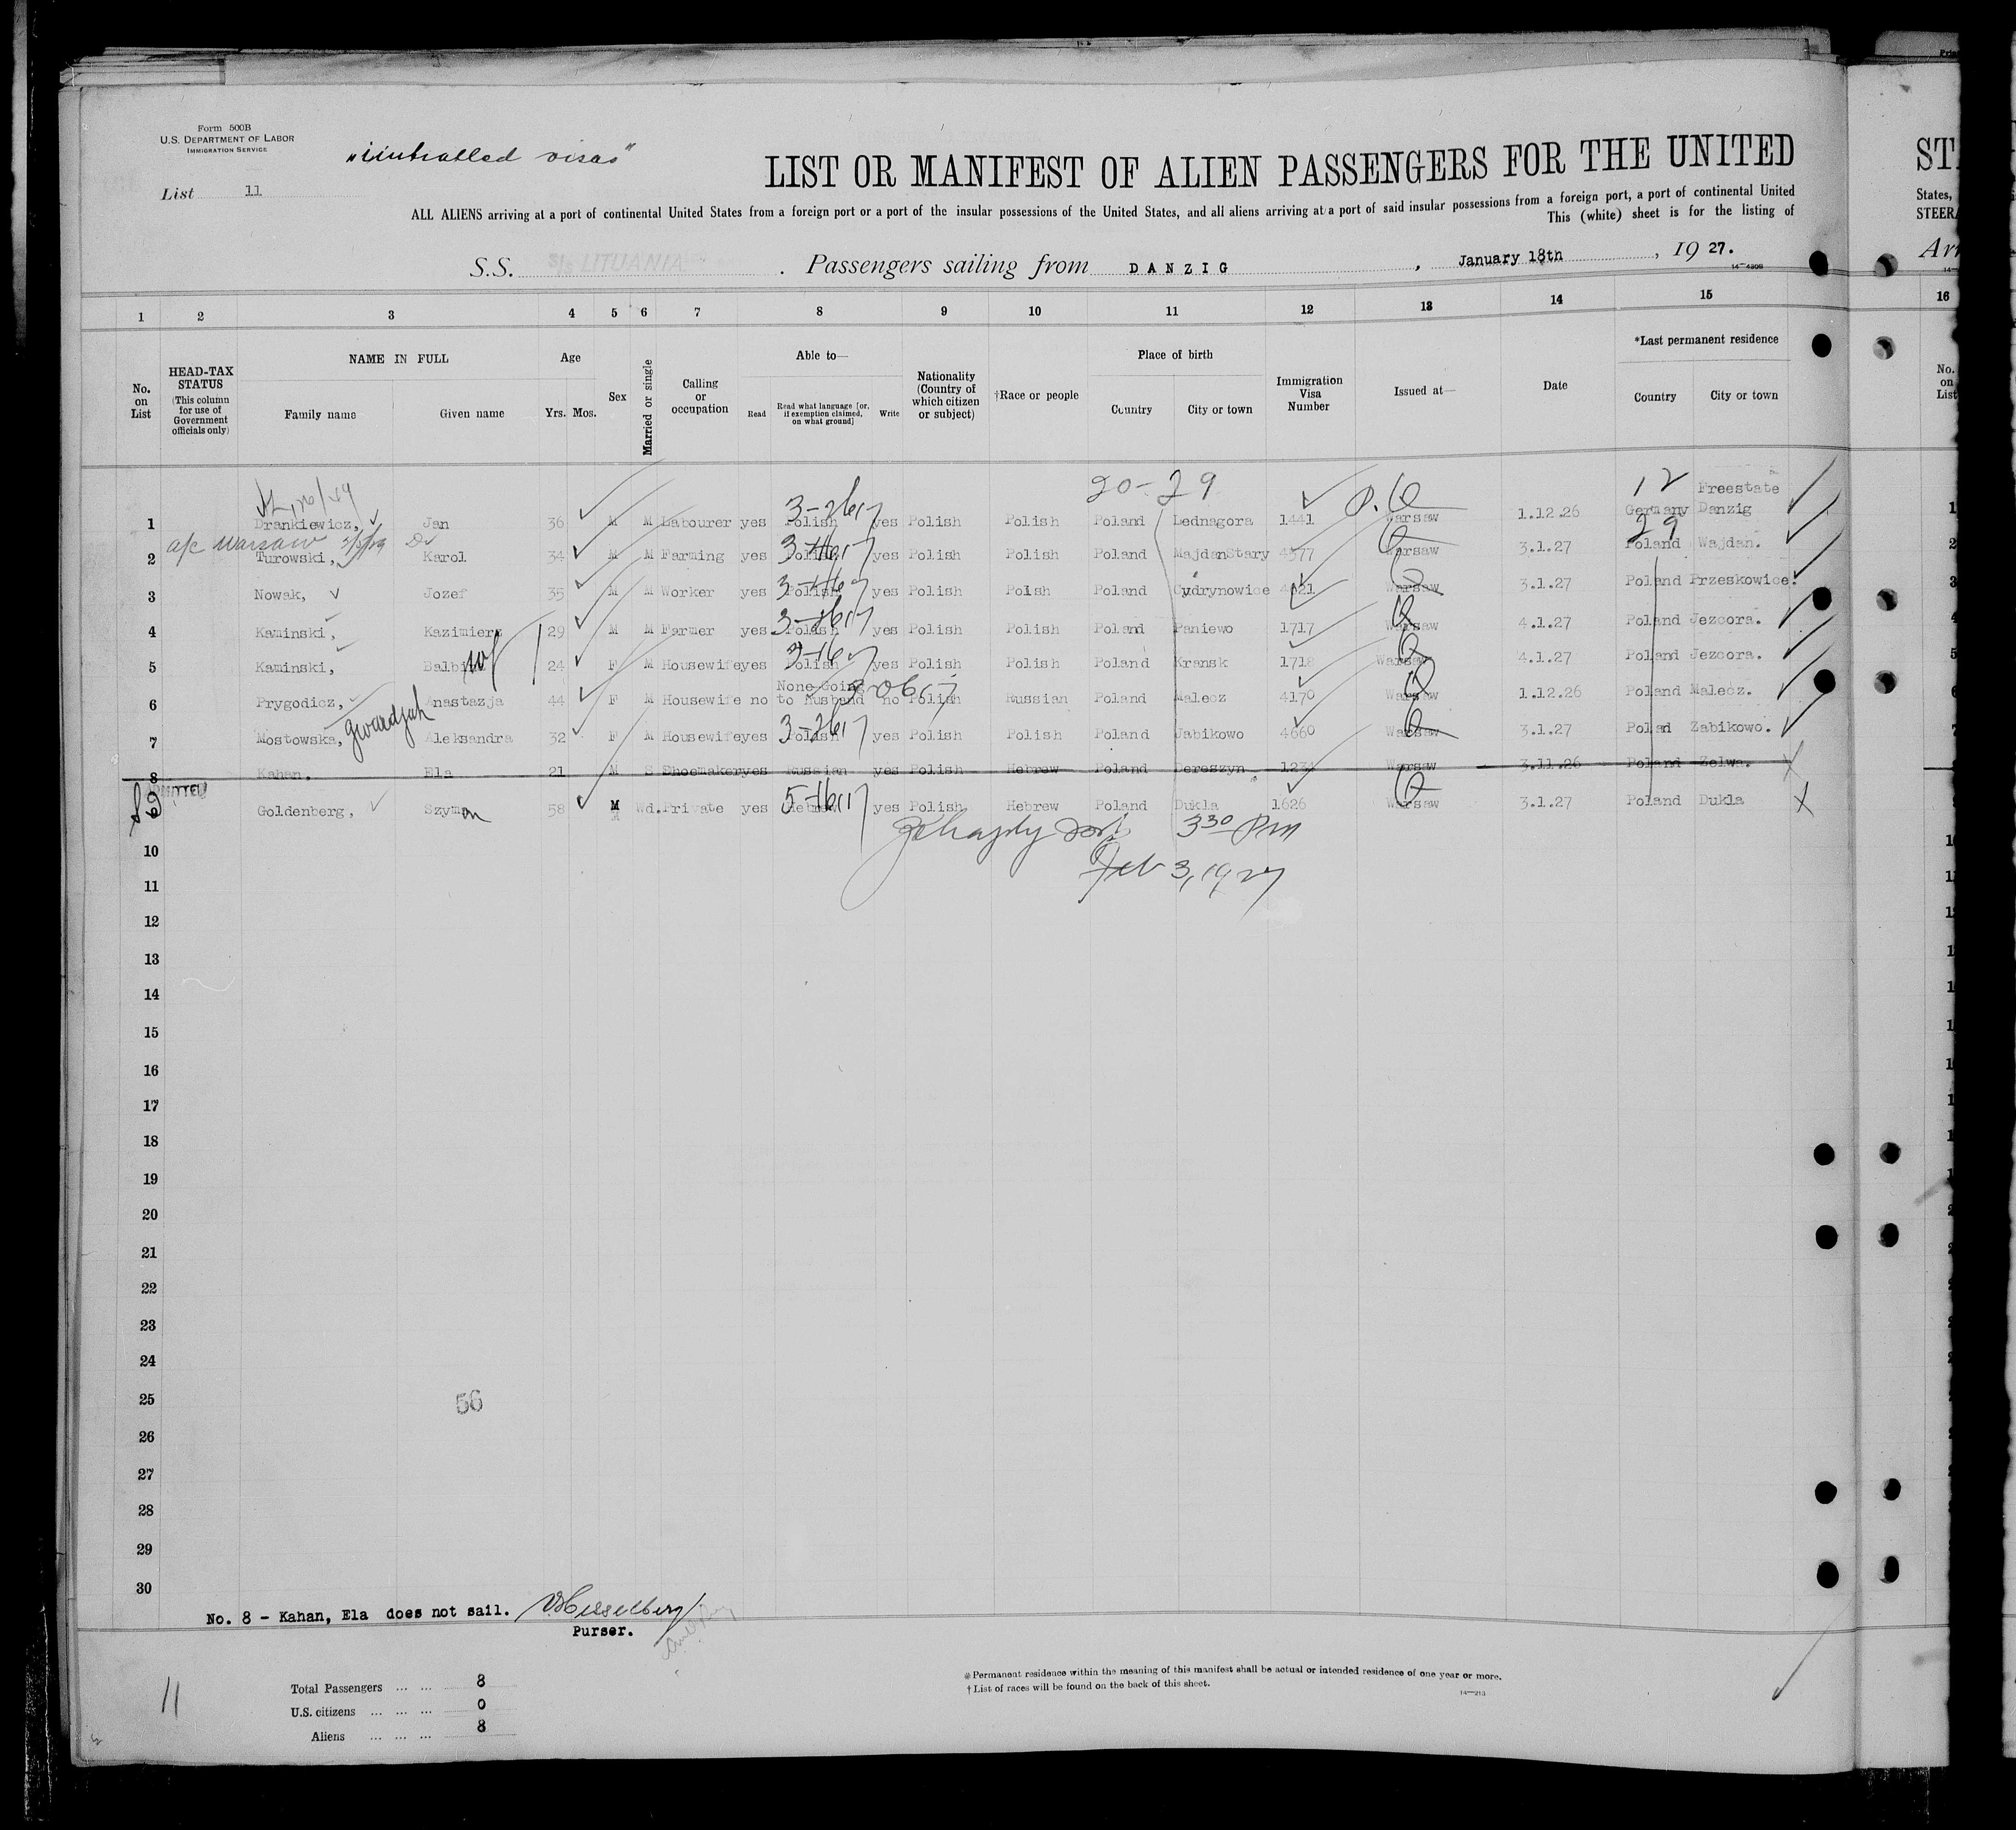 Form 500B
U.S. DEPARTMENT OF LABOR
IMMIGRATION SERVICE
List 11
visas"
LIST OR MANIFEST OF ALIEN PASSENGERS FOR THE UNITED
ALL ALIENS arriving at a port of continental United States from a foreign port or a port of the insular possessions of the United States, and all aliens arriving at a port of said insular possessions from a foreign port, a port of continental United
This (white) sheet is for the listing of
S.S. S/S LITUANIA . Passengers sailing from DANZIG , January 18th , 1927.
14—4308
1 2 3 4 5 6 7 8 9 10 11 12 13 14 15
No. on List
HEAD-TAX STATUS (This column for use of Government officials only)
NAME IN FULL
Family name Given name
Age
Yrs. Mos.
Sex
Married or single
Calling or occupation
Able to—
Read Read what language [or, if exemption claimed, on what ground] Write
Nationality (Country of which citizen or subject)
†Race or people
Place of birth
Country City or town
Immigration Visa Number
Issued at—
Date
*Last permanent residence
Country City or town
20-29
12 Freestate
1 Drankiewicz, Jan 36 M M Labourer yes Polish yes Polish Polish Poland Lednagora 1441 Warsaw 1.12.26 Germany Danzig
a/c Warsaw
29
2 Turowski, Karol 34 M M Farming yes Polish yes Polish Polish Poland MajdanStary 4577 Warsaw 3.1.27 Poland Wajdan.
3 Nowak, Jozef 35 M M Worker yes Polish yes Polish Polsh Poland Cydrynowice 4621 Warsaw 3.1.27 Poland Przeskowice.
4 Kaminski, Kazimierz 29 M M Farmer yes Polish yes Polish Polish Poland Paniewo 1717 Warsaw 4.1.27 Poland Jezoora.
5 Kaminski, Balbina wf 24 F M Housewife yes Polish yes Polish Polish Poland Kransk 1718 Warsaw 4.1.27 Poland Jezoora.
None Going
6 Prygodicz, Anastazja 44 F M Housewife no to Husband no Polish Russian Poland Malecz 4170 Warsaw 1.12.26 Poland Malecz.
7 Mostowska, Aleksandra 32 F M Housewife yes Polish yes Polish Polish Poland Jabikowo 4660 Warsaw 3.1.27 Poland Zabikowo.
8 Kahan, Ela 21 M S Shoemaker yes Russian yes Polish Hebrew Poland Dereszyn 1234 Warsaw 3.11.26 Poland Zelwa.
ADMITTED
9 Goldenberg, Szymon 58 M Wd. Private yes Hebrew yes Polish Hebrew Poland Dukla 1626 Warsaw 3.1.27 Poland Dukla
3 30 Pm
10
Feb 3, 1927
11
12
13
14
15
16
17
18
19
20
21
22
23
24
25
56
26
27
28
29
30
No. 8 - Kahan, Ela does not sail.
Purser.
11
Total Passengers ... ... 8
U.S. citizens ... ... ... 0
Aliens ... ... ... 8
*Permanent residence within the meaning of this manifest shall be actual or intended residence of one year or more.
†List of races will be found on the back of this sheet.
14—213
ST
States,
STEERA
Arr
16
No. on List